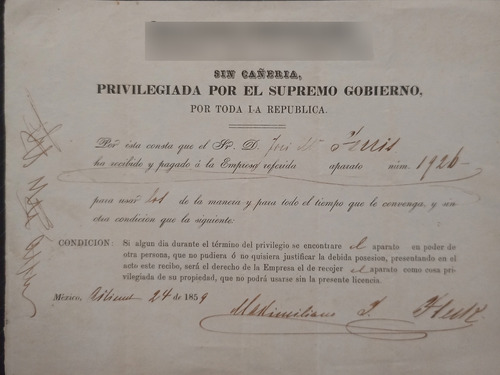 SIN CAÑERIA,
PRIVILEGIADA POR EL SUPREMO GOBIERNO,
POR TODA LA REPUBLICA.
Por ésta consta que el Sr. D. José
ha recibido y pagado á la Empresa referida aparato núm. 1926
para usar los de la manera y para todo el tiempo que le convenga, y sin
otra condicion que la siguiente:
CONDICION: Si algun dia durante el término del privilegio se encontrare el aparato en poder de
otra persona, que no pudiera ó no quisiera justificar la debida pozesion, presentando en el
acto este recibo, será el derecho de la Empresa el de recojer el aparato como cosa pri-
vilegiada de su propiedad, que no podrá usarse sin la presente licencia.
México, 24 de 1859
Maximiliano